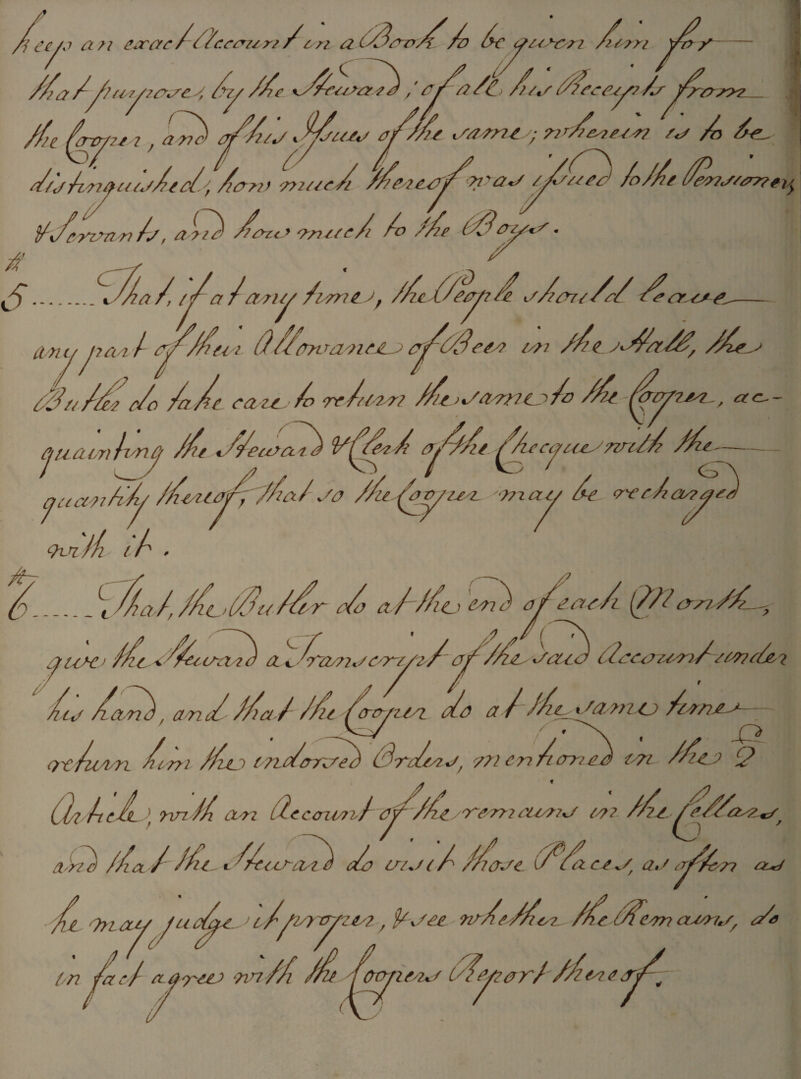 keep an exact Account in a Book to be given him for
that purpose, by the Steward, of all his Receipts from
the Cooper, and of his Issues of the same; wherein is to be
distinguished, how much thereof was issued to the Pensioners
& Servants, and how much to the Boys.
5 ........ That, if at any time, the People should leave
any part of their Allowance of Beer in the Hall, the
Butler do take care to return the same to the Cooper, ac-
quainting the Steward & Clerk of the Checque with the
quantity thereof, that so the Cooper may be rechanged
with it.
6 ...... That, the Butler do at the end of each Month,
give the Steward a Transcript of the said Account under
his hand, and that the Cooper do at the same time
return him the indorsed Orders, mentioned in the 2
Article, with an Account of the remains in the Cellars,
and that the Steward do visit those Places, as often as
he may judge it proper, & see whether the Remains, do
in fact agree with the Coopers Report thereof.